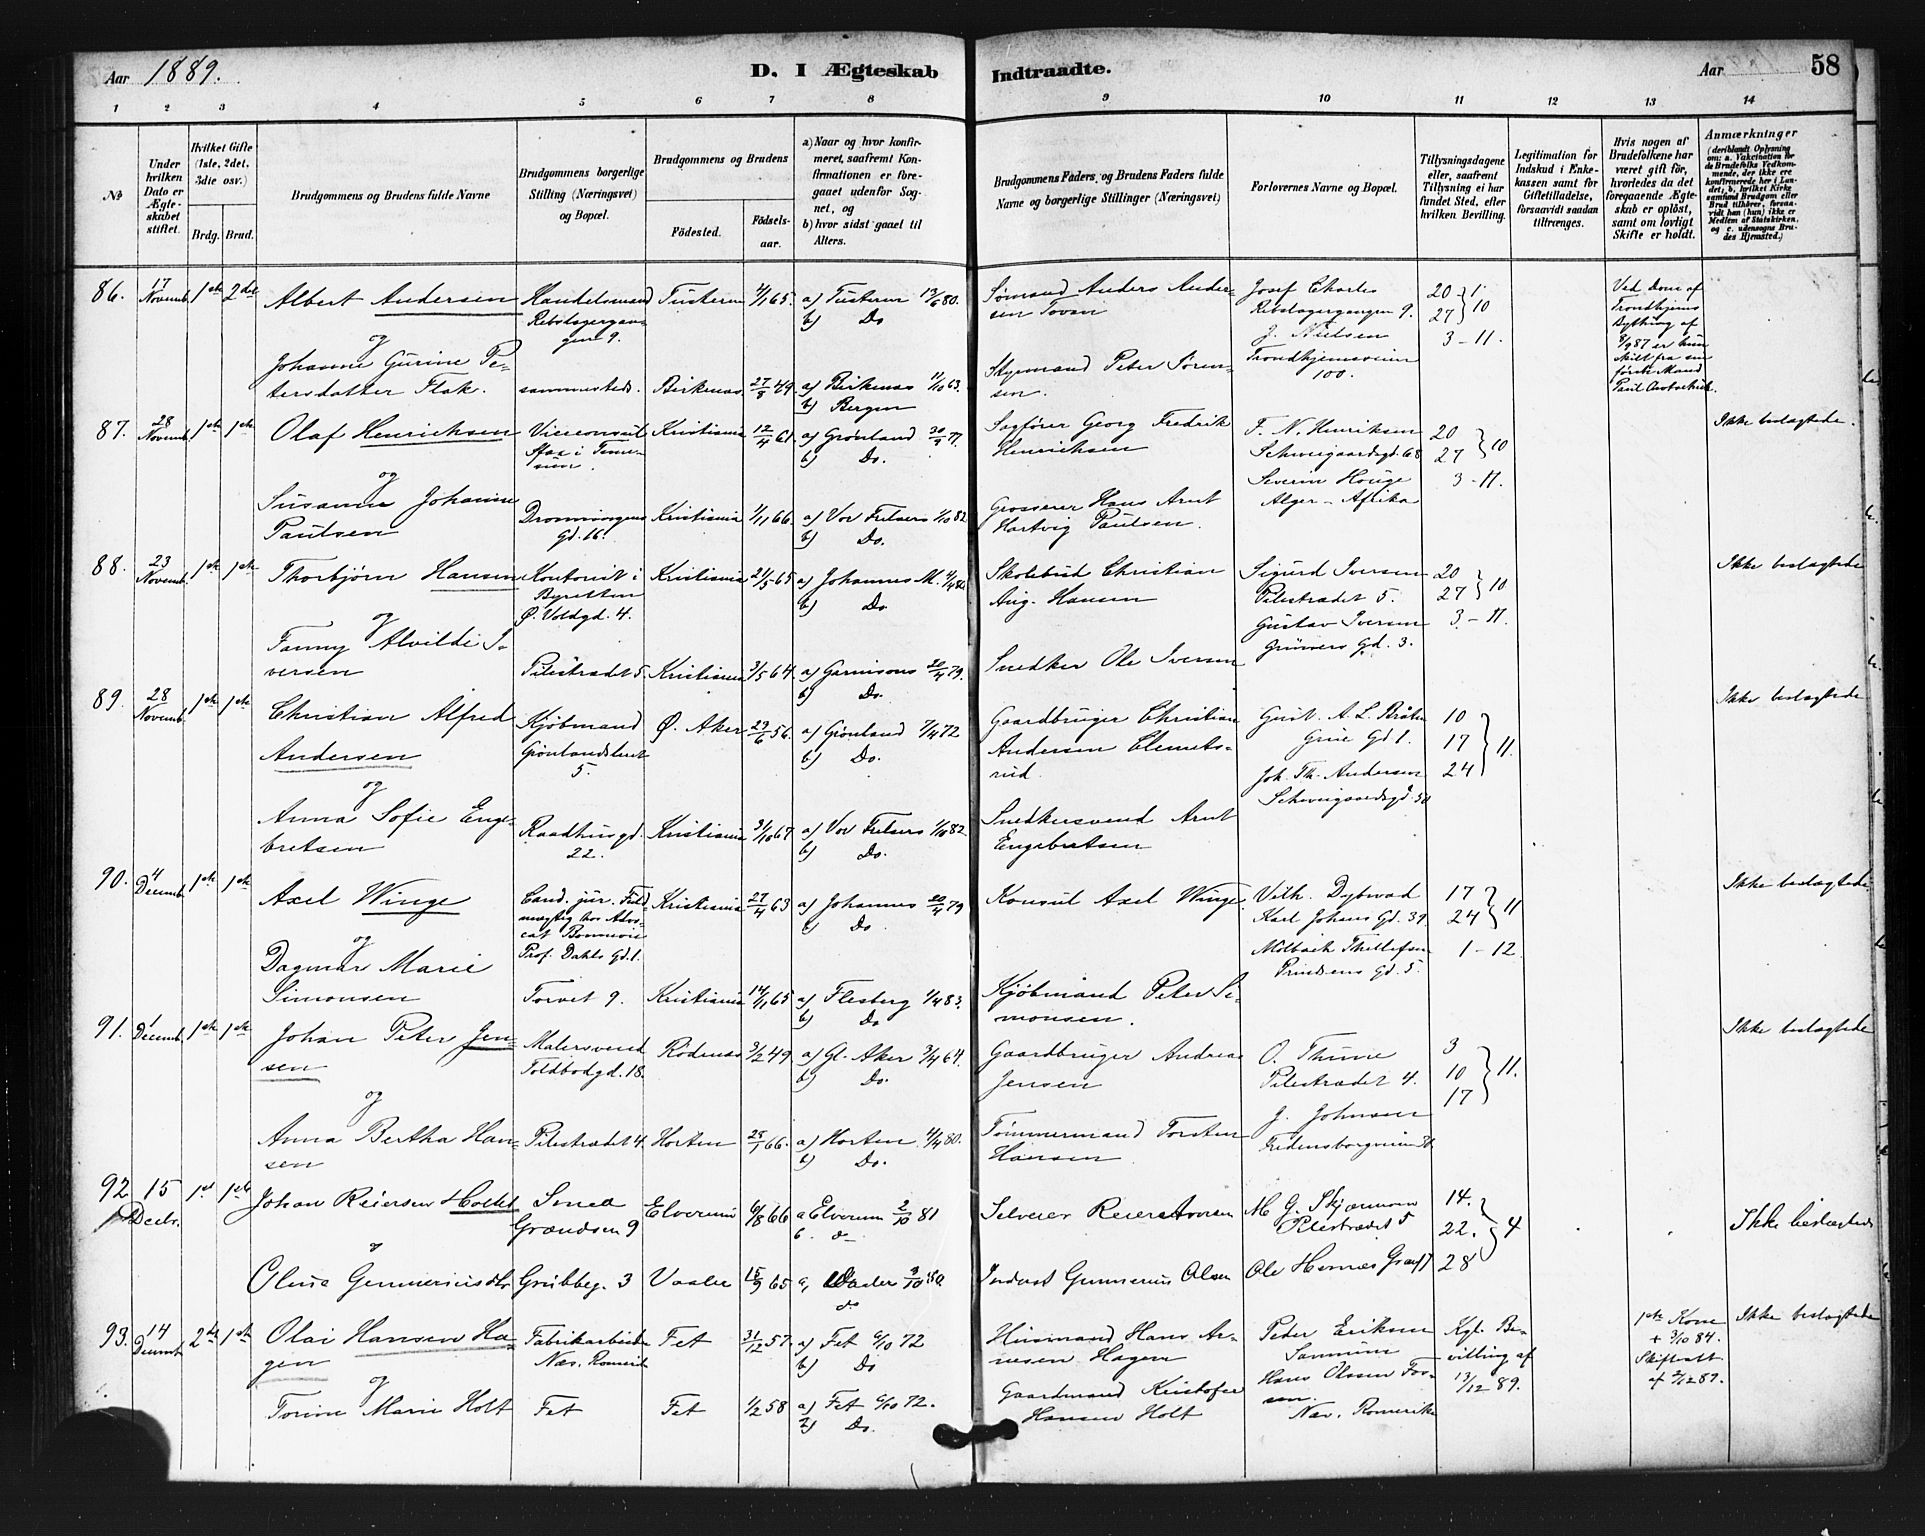 Aar 1889.
D. I Ægteskab
Indtraadte.
Aar
58
1 2 3 4 5 6 7 8 9 10 11 12 13 14
No
Under hvilken Dato er Ægteskabet stiftet.
Hvilket Gifte (1ste, 2det, 3die osv.)
Brdg. Brud.
Brudgommens og Brudens fulde Navne
Brudgommens borgerlige Stilling (Næringsvei) og Bopæl.
Brudgommens og Brudens
Fødested.
Fødselsaar.
a) Naar og hvor konfirmeret, saafremt Konfirmationen er foregaaet udenfor Sognet, og
b) hvor sidst gaaet til Alters.
Brudgommens Faders og Brudens Faders fulde Navne og borgerlige Stillinger (Næringsvei)
Forlovernes Navne og Bopæl.
Tillysningsdagene eller, saafremt Tillysning ei har fundet Sted, efter hvilken Bevilling.
Legitimation for Indskud i Enkekassen samt for Giftetilladelse, forsaavidt saadan tiltrænges.
Hvis nogen af Brudefolkene har været gift før, hvorledes da det foregaaende Ægteskab er opløst, samt om lovligt Skifte er holdt.
Anmærkninger
86. 17 Novemb. 1ste 2det
Albert Andersen
Handelsmand
Rebslagergangen 9.
Tusteren 4/1 65.
a) Tusteren 13/6 80.
b) Do
Sømand Anders Andersen Tovan
Josef Charles
Rebslagergangen 9.
J. Nielsen
Trondhjemsveien 100.
20 27 } 10
3 - 11.
Ved Dom af Trondhjems Bything af 8/9 87 er hun skilt fra sin første Mand
og
Johanne Gurine Petersdatter Flak.
sammesteds.
Birkenæs 27/8 49.
a) Birkenæs 11/10 63.
b) Bergen
Styrmand Peter Sørensen.
87. 28 Novemb. 1ste 1ste
Olaf Henrichsen
Viceconsul
Sfax i Tunesien.
Kristiania 12/4 61.
a) Grønland 30/9 77.
b) Do.
Sagfører Georg Fredrik Henrichsen
F. N. Henriksen
Schweigaardsgd. 68
Severin Houge
Alger - Afrika
20 27 } 10
3 - 11.
Ikke beslægtede.
og
Susanne Johanne Paulsen
Dronningens Gd. 16.
Kristiania 1/11 66.
a) Vor Frelsers 1/10 82.
b) Do.
Grosserer Hans Arnt Hartvig Paulsen.
88. 23 Novemb. 1ste 1ste
Thorbjørn Hansen
Kontorist i Byretten
Ø. Voldgd. 4.
Kristiania 21/5 65
a) Johannes M. 4/4 80
b) Do
Skolebud Christian Aug. Hansen
Sigurd Iversen
Pilestrædet 5.
Gustav Iversen
Grüners Gd. 3.
20 27 } 10
3. - 11.
Ikke beslægtede
og
Fanny Alvilde Iversen
Pilestrædet 5.
Kristiania 3/5 64.
a) Garnisons 20/4 79.
b) Do.
Snedker Ole Iversen
89. 28 Novemb. 1ste 1ste
Christian Alfred Andersen
Kjøbmand
Grønlandsleret 5.
Ø. Aker 29/6 56.
a) Grønland 7/4 72
b) Do.
Gaardbruger Christian Andersen Clemetsrud.
Gust. A. L. Bråten
Grue Gd 1.
Joh. Th. Andersen
Schweigaardsgd 50
10 17 24 } 11.
Ikke beslægtede
og
Anna Sofie Engebretsen
Raadhusgd. 22.
Kristiania 31/10 67.
a) Vor Frelsers 1/10 82.
b) Do.
Snedkersvend Arnt Engebretsen
90. 4 Decemb. 1ste 1ste
Axel Winge
Cand. jur. Fuldmægtig hos Advocat Bonnevie
Prof. Dahls Gd. 1.
Kristiania 27/4 63
a) Johannes 20/4 79
b) Do.
Konsul Axel Winge.
Vilh. Dybwad
Karl Johans Gd. 37
Milbach Thillefsen
Prindsens Gd. 5.
17 24 } 11
1 - 12.
Ikke beslægtede
og
Dagmar Marie Simonsen
Torvet 9.
Kristiania 14/1 65
a) Flesberg 1/4 83.
b) Do
Kjøbmand Peter Simonsen.
91. 1 Decemb. 1ste 1ste
Johan Peter Jensen
Malersvend
Toldbodgd. 18.
Rødenæs 3/2 49.
a) Gl. Aker 3/4 64.
b) Do.
Gaardbruger Andreas Jensen
O. Thune
Pilestrædet 4.
J. Johnsen
3 10 17 } 11.
Ikke beslægtede
og
Anna Bertha Hansen
Pilestrædet 4.
Horten 25/7 66.
a) Horten 11/4 80.
b) Do.
Tømmermand Torsten Hansen
92 15 Decbr. 1st 1ste
Johan Reiersen Holtet
Smed
Grændsen 9
Elverum 6/8 66
a Elverum 2/10 81
b. do
Selveier Reier Iversen
M G. Skjønnum
Pilestrædet 5
14. 22. 28 } 4
Ikke beslægtede
og
Oluia Gunneriusdtr
Grubbeg. 3
Vaaler 15/9 65
a, Vaaler 3/10 80.
do
Inderst Gunnerius Olsen
Ole Hernæs
93. 14 Decemb. 2det 1ste
Olai Hansen Hagen
Fabrikarbeider
Næs. Romerike
Fet 31/12 57.
a) Fet 6/10 72
b) Do
Husmand Hans Arnesen Hagen
Peder Eriksen
Hans Olssen
Næs. Romerike
Kgl. Bevilling af 13/12 89.
1ste Kone + 3/10 84.
Skifteatt. af 2/12 89.
Ikke beslægtede
og
Torine Marie Holt
Fet
Fet 1/2 58
a) Fet 6/10 72.
b) Do.
Gaardmand Kristofer Hansen Holt